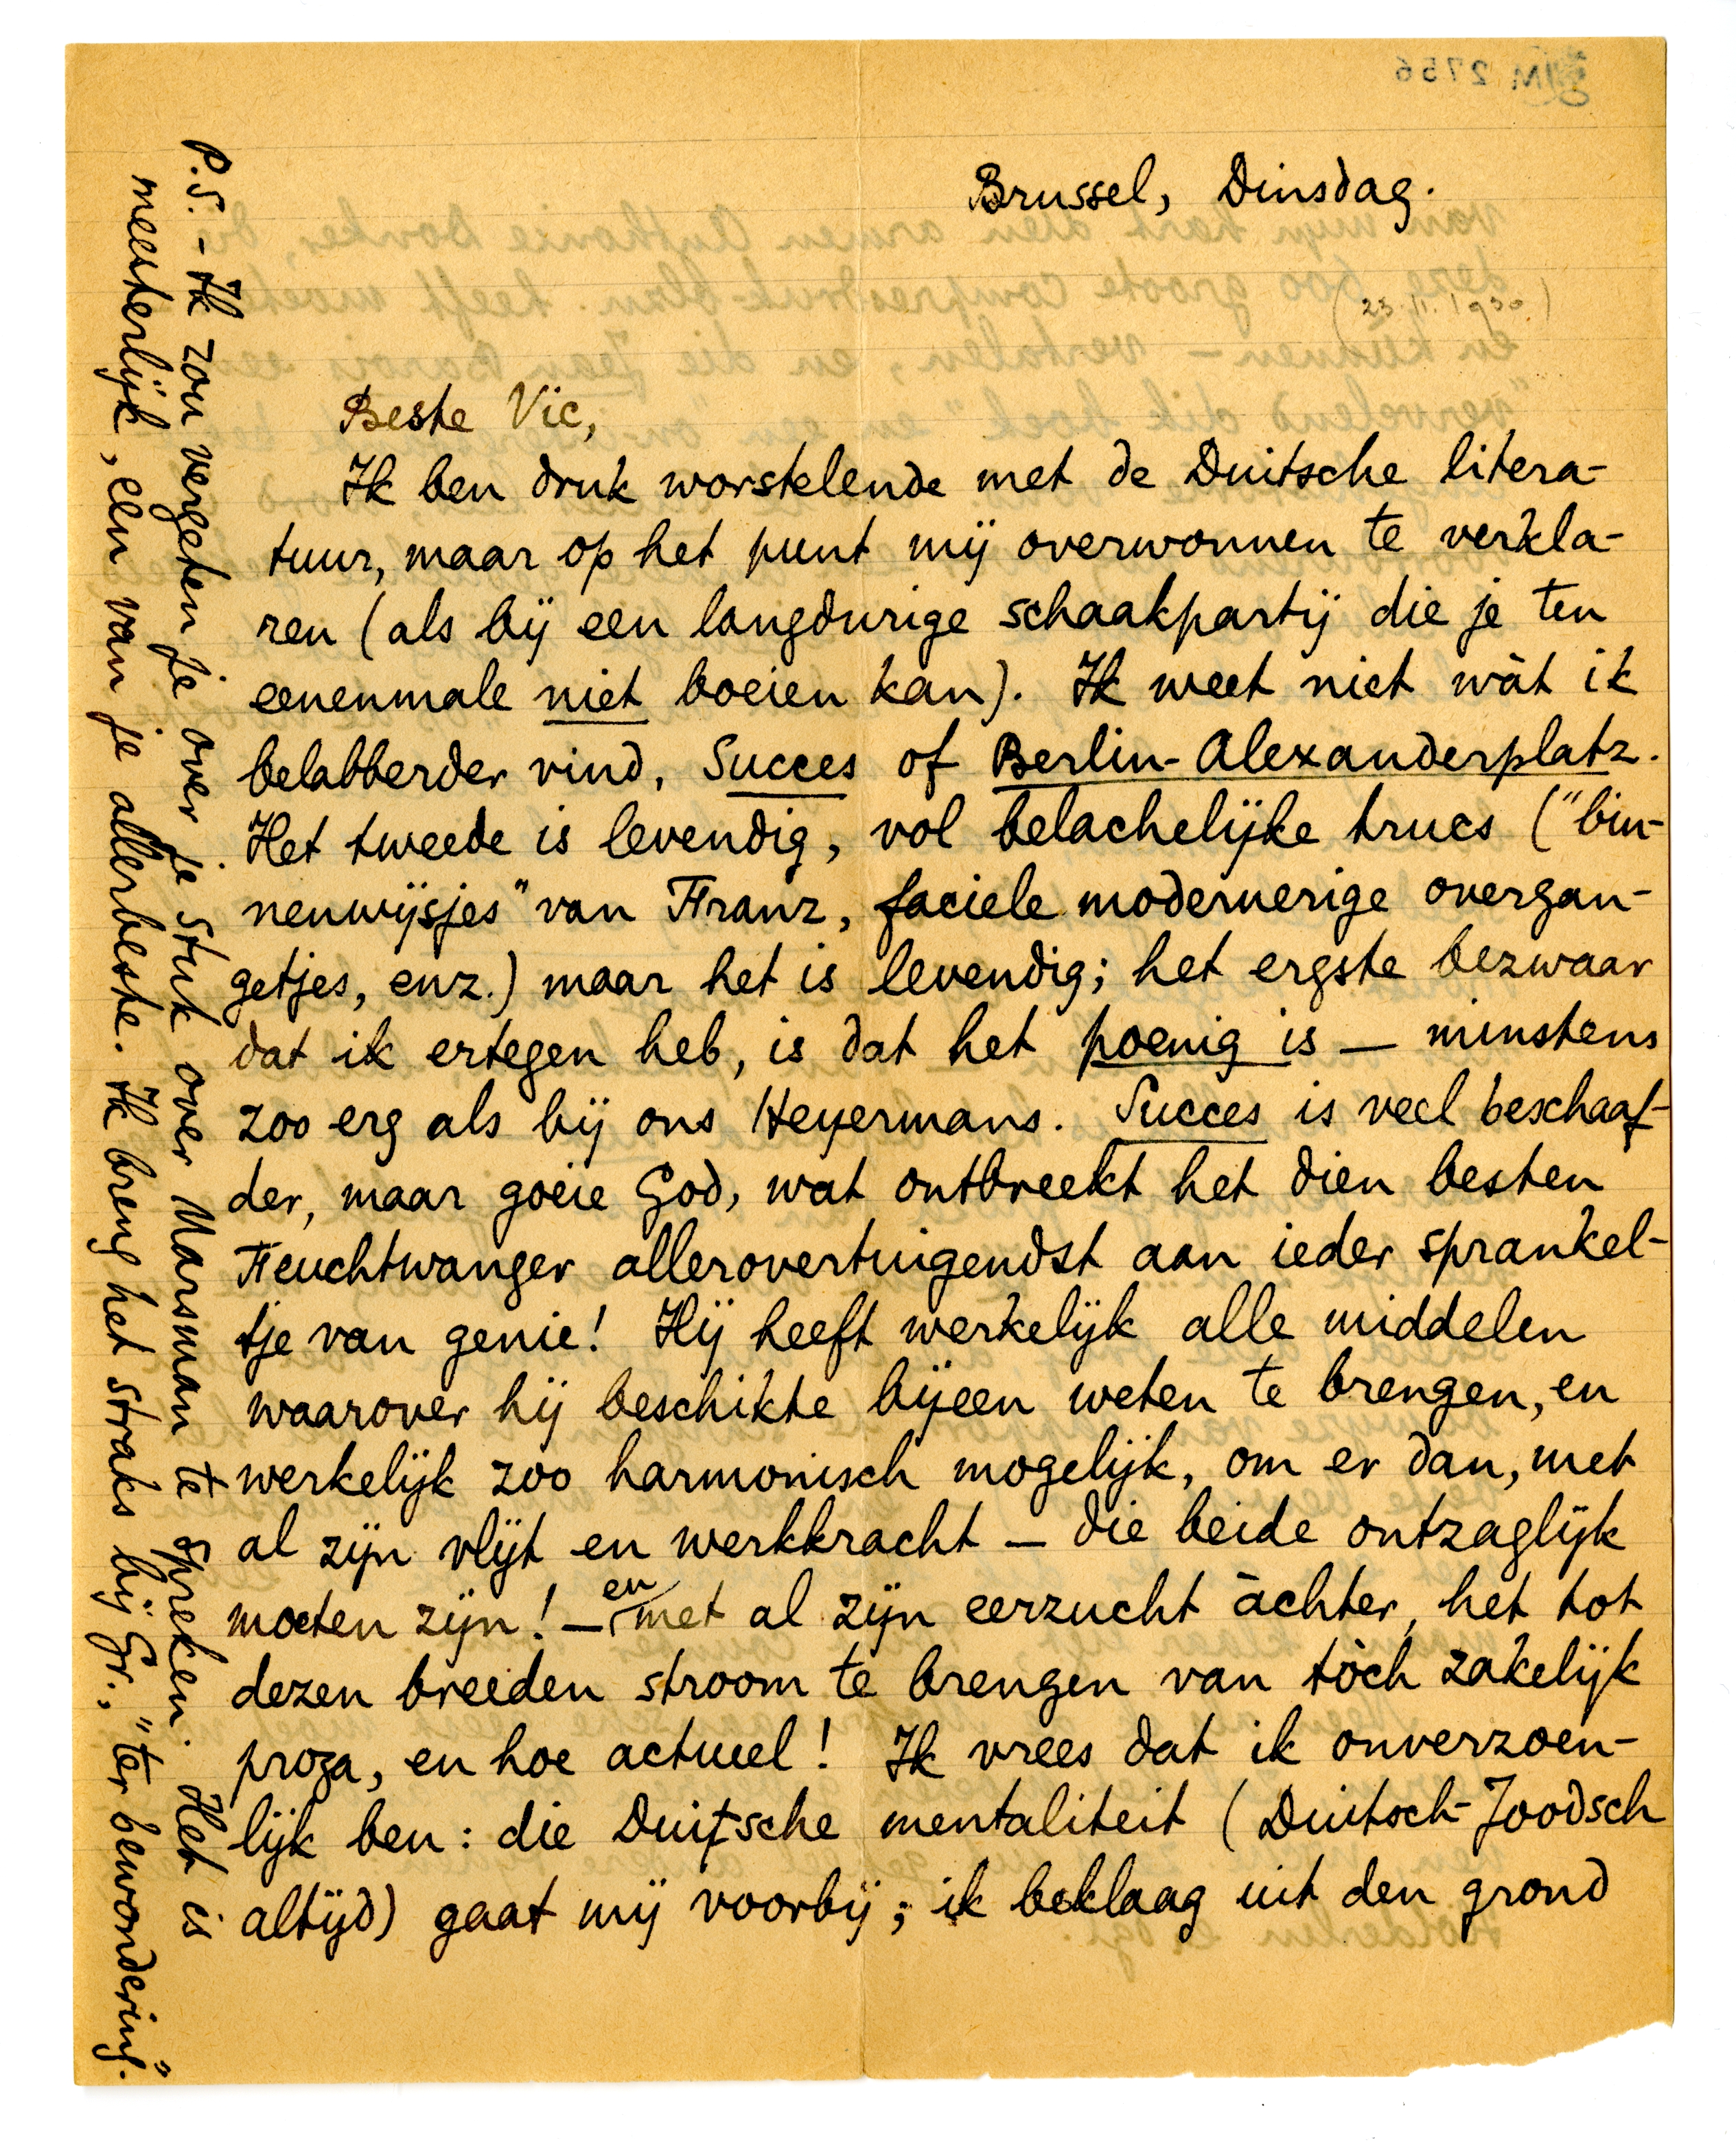 Brussel, Dinsdag.
(25.11.1930.)
Beste Vic,
Ik ben druk worstelende met de Duitsche litera-
tuur, maar op het punt mij overwonnen te verkla-
ren (als bij een langdurige schaakpartij die je ten
eenenmale niet boeien kan). Ik weet niet wàt ik
belabberder vind, Succes of Berlin-Alexanderplatz.
Het tweede is levendig, vol belachelijke trucs ("bin-
nenwijsjes" van Franz, faciele modernerige overgan-
getjes, enz.) maar het is levendig; het ergste bezwaar
dat ik ertegen heb, is dat het poenig is — minstens
zoo erg als bij ons Heyermans. Succes is veel beschaaf-
der, maar goeie God, wat ontbreekt het dien besten
Feuchtwanger allerovertuigendst aan ieder sprankel-
tje van genie! Hij heeft werkelijk alle middelen
waarover hij beschikte bijeen weten te brengen, en
werkelijk zoo harmonisch mogelijk, om er dan, met
al zijn vlijt en werkkracht — die beide ontzaglijk
moeten zijn! — en met al zijn eerzucht àchter, het tot
dezen breeden stroom te brengen van tòch zakelijk
proza, en hoe actueel! Ik vrees dat ik onverzoen-
lijk ben: die Duitsche mentaliteit (Duitsch-Joodsch
altijd) gaat mij voorbij; ik beklaag uit den grond
P.S. - Ik zou vergeten je over je stuk over Marsman te spreken. Het is
meesterlijk, een van je allerbeste. Ik breng het straks bij Gr., "ter bewondering".
M 2756